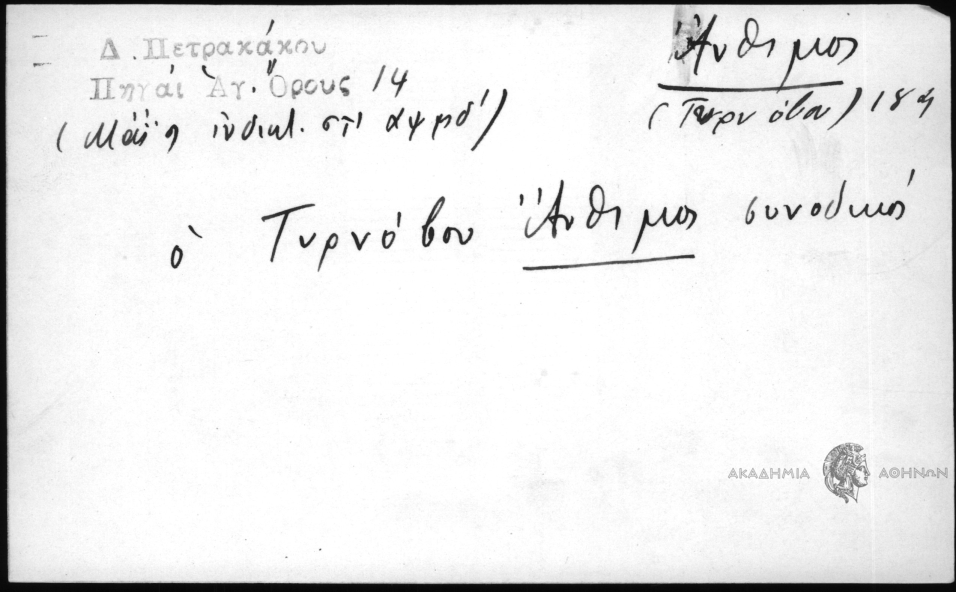 Δ. Πετρακάκου
Πηγαὶ Ἁγ. Ὄρους 14
(Μάϊος ἰνδικτ. στ' αψμδ')
Ἄνθιμος
(Τυρνόβου) 18 αἰ
ὁ Τυρνόβου Ἄνθιμος συνοδικός
ΑΚΑΔΗΜΙΑ ΑΘΗΝΩΝ